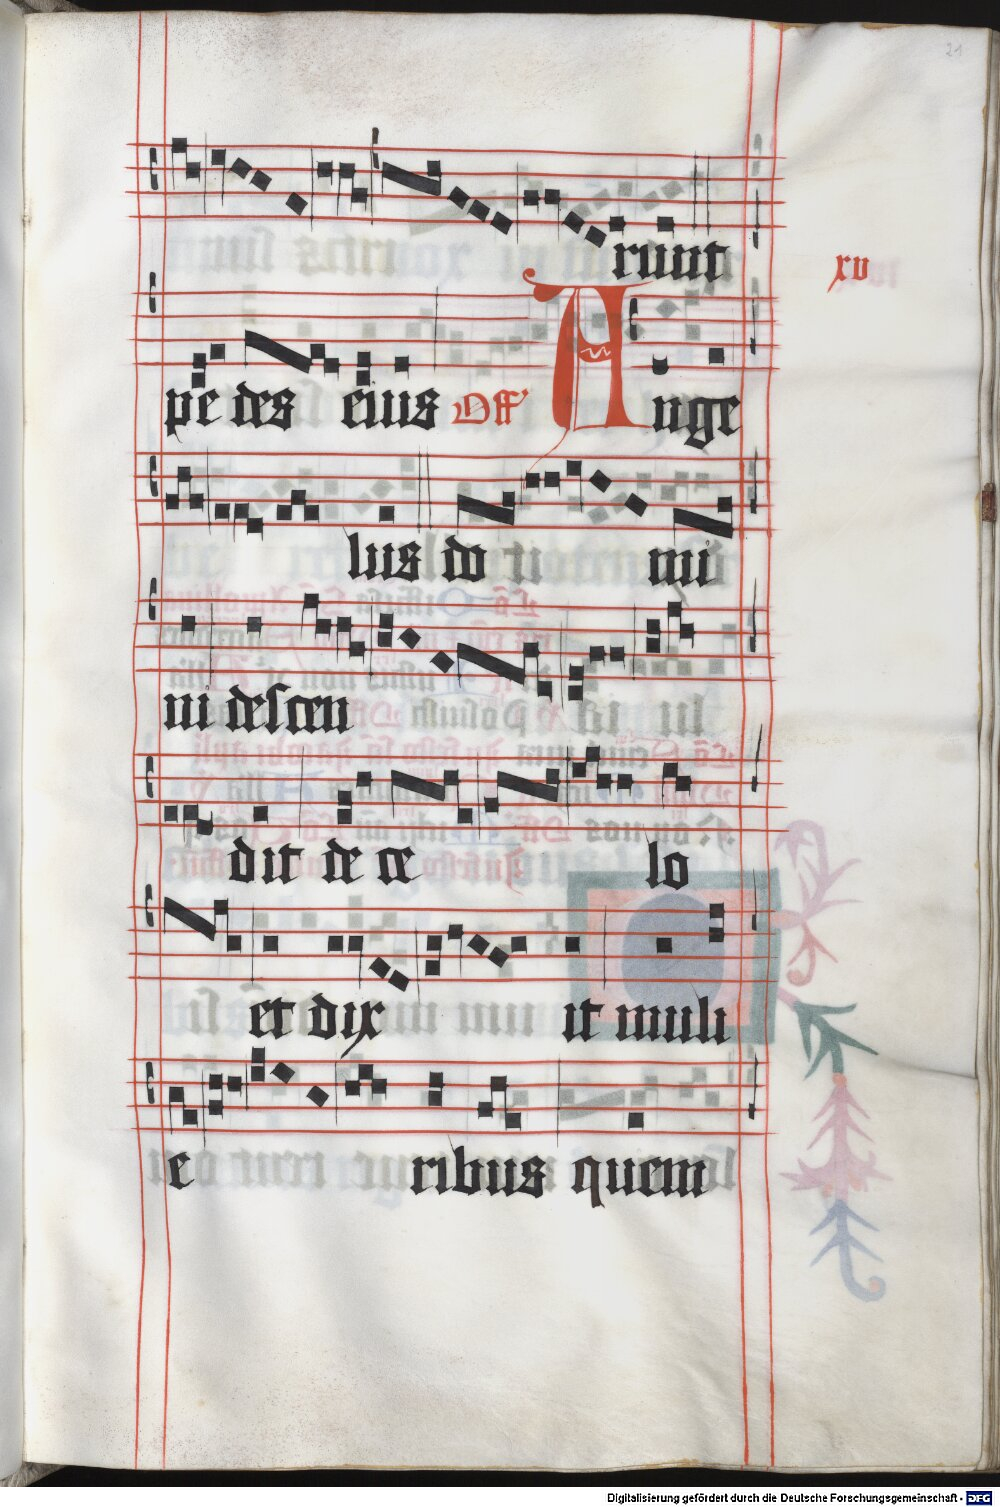 21
runt
xv
pe des eius Off Ange
lus do mi
ni descen
dit de ce lo
et dix it muli
e ribus quem
Digitalisierung gefördert durch die Deutsche Forschungsgemeinschaft - DFG